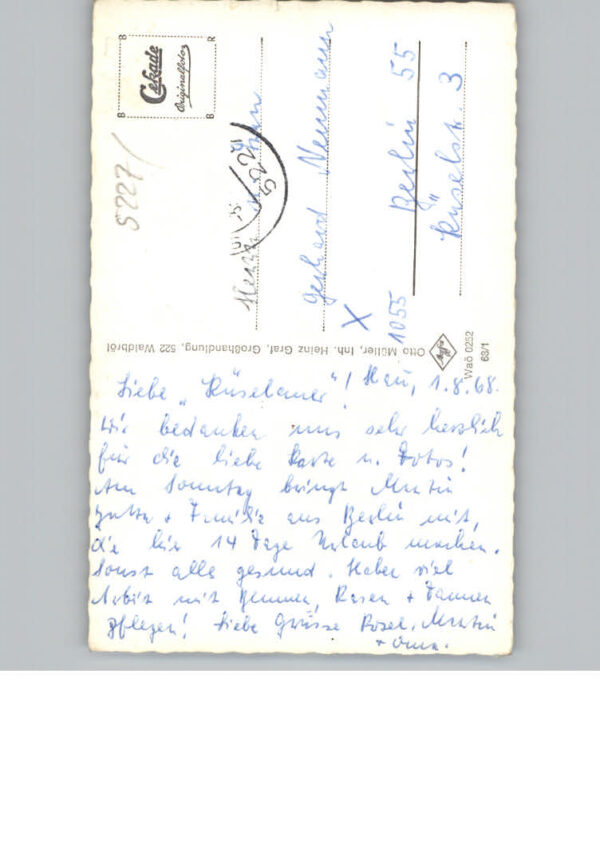 Liebe „Rüselaner"! Hau, 1.8.68.
Wir bedanken uns sehr herzlich
für die liebe Karte u. Fotos!
Am Sonntag bringt Martin
Jutta + Familie aus Berlin mit,
die hier 14 Tage Urlaub machen.
Sonst alle gesund. Haben viel
Arbeit mit Blumen, Rasen + Tannen
pflegen! Liebe Grüsse Rosel, Martin
+ Oma.
Otto Müller, Inh. Heinz Graf, Großhandlung, 522 Waldbröl
Cekade
Originalfoto
B
R
B
B
5227/
Gerhard Neumann
X
1055 Berlin 55
3
Agfa
Waö 0252
68/1